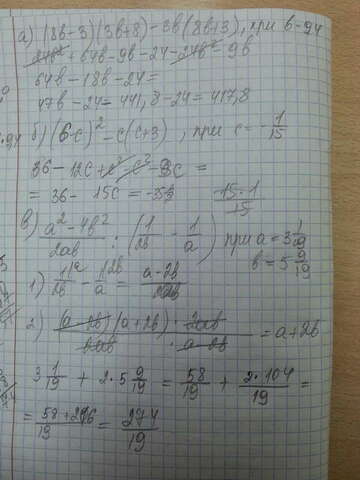 а) (8в-3)(3в+8)-3в(8в+3), при в=94
24в²+64в-9в-24-24в²-9в
64в-18в-24=
47в-24=441,8-24=417,8
б) (6-с)²-с(с+3), при с=-1/15
36-12с+с²-с²-3с=
=36-15с=-35 -15·1/15
в) a²-4b²/2ab : (1/2b - 1/a) при a=3 1/19
b=5 9/19
1) 1/2b - 1/a = a-2b/2ab
2) (a-2b)(a+2b)·2ab/2ab·a-2b = a+2b
3 1/19 + 2·5 9/19 = 58/19 + 2·104/19 =
= 58+216/19 = 274/19